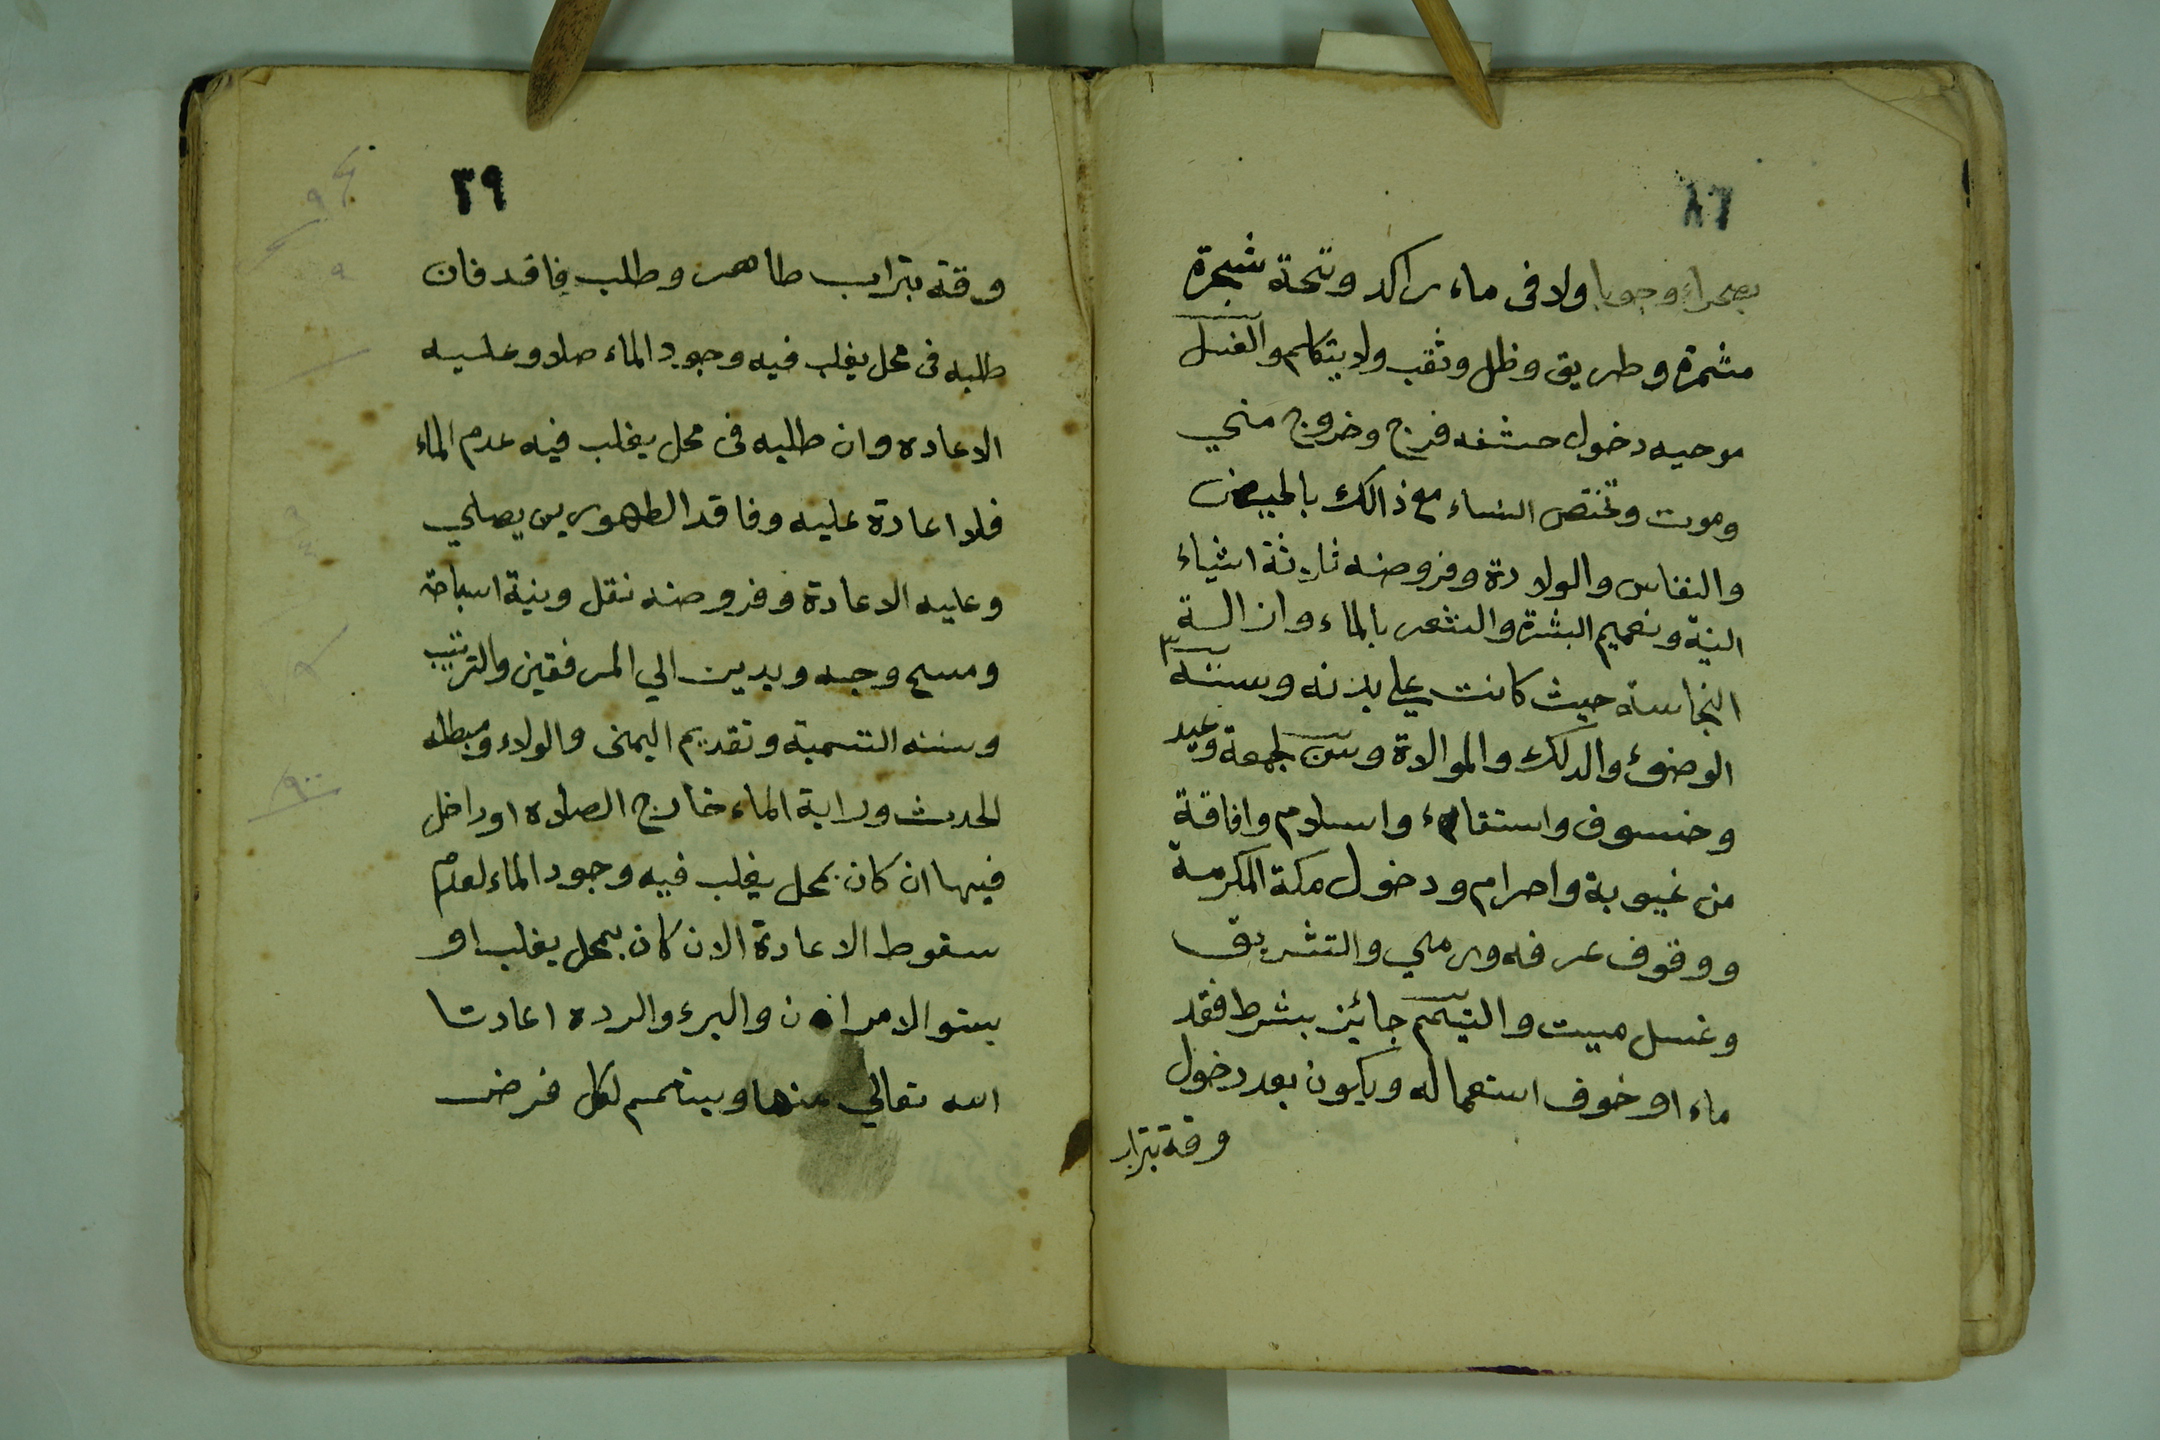 ٨٦
بصحراء وجوبا ولا فى ماء راكد وتحة شجرة
مثمرة وطريق وظل وثقب ولا يتكلم والغسل
موجبه دخول حشفه فرج وخروج مني
وموت وتختص النساء مع ذالك بالحيض
والنفاس والولادة وفروضه ثلاثة اشياء
النية وتعميم البشرة والشعر بالماء وازالة
النجاسة حيث كانت علي بدنه وسننه ٣
الوضوء والدلك والموالاة وسن لجمعة وعيد
وخسوف واستقاء واسلام وافاقة
من غيوبة واحرام ودخول مكة المكرمة
ووقوف عرفه ورمي والتشريق
وغسل ميت والتيمم جائز بشرط فقد
ماء او خوف استعماله ويكون بعد دخول
وقة بتراب
٣٩
وقة بتراب طاهر وطلب فاقد فان
طلبه فى محل يغلب فيه وجود الماء صلا وعليه
الاعاده وان طلبه فى محل يغلب فيه عدم الماء
فلا اعادة عليه وفاقد الطهورين يصلي
وعليه الاعادة وفروضه نقل ونية اسباحة
ومسح وجه ويدين الي المرفقين والترتيب
وسننه التسمية وتقديم اليمنى والولاء ومبطله
الحدث وراية الماء خارج الصلاه او داخل
فيها ان كان بمحل يغلب فيه وجود الماء لعدم
سقوط الاعادة الان كان بمحل يغلب او
يستو الامران والبرء والرده اعادنا
الله تعالي منها ويتمم لكل فرض